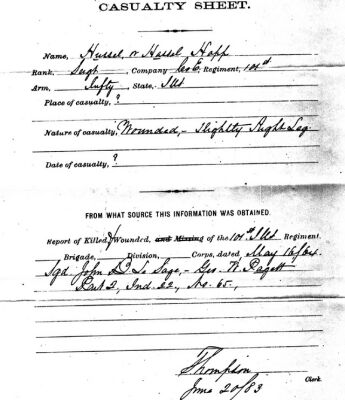 CASUALTY SHEET.
Name, Hussel, or Hassel Hopp
Rank, Sergt, Company Co E, Regiment, 101st
Arm, Infty, State, Ills
Place of casualty, ?
Nature of casualty, Wounded, - Slightly Right Leg.
Date of casualty, ?
FROM WHAT SOURCE THIS INFORMATION WAS OBTAINED.
Report of Killed, Wounded, and Missing of the 101st Ills Regiment.
Brigade, Division, Corps, dated, May 16/64.
Sgd John B Le Sage, - Geo. W. Pagett
Part 2, Ind. 22, No. 65,
Thompson
Clerk.
June 20/83